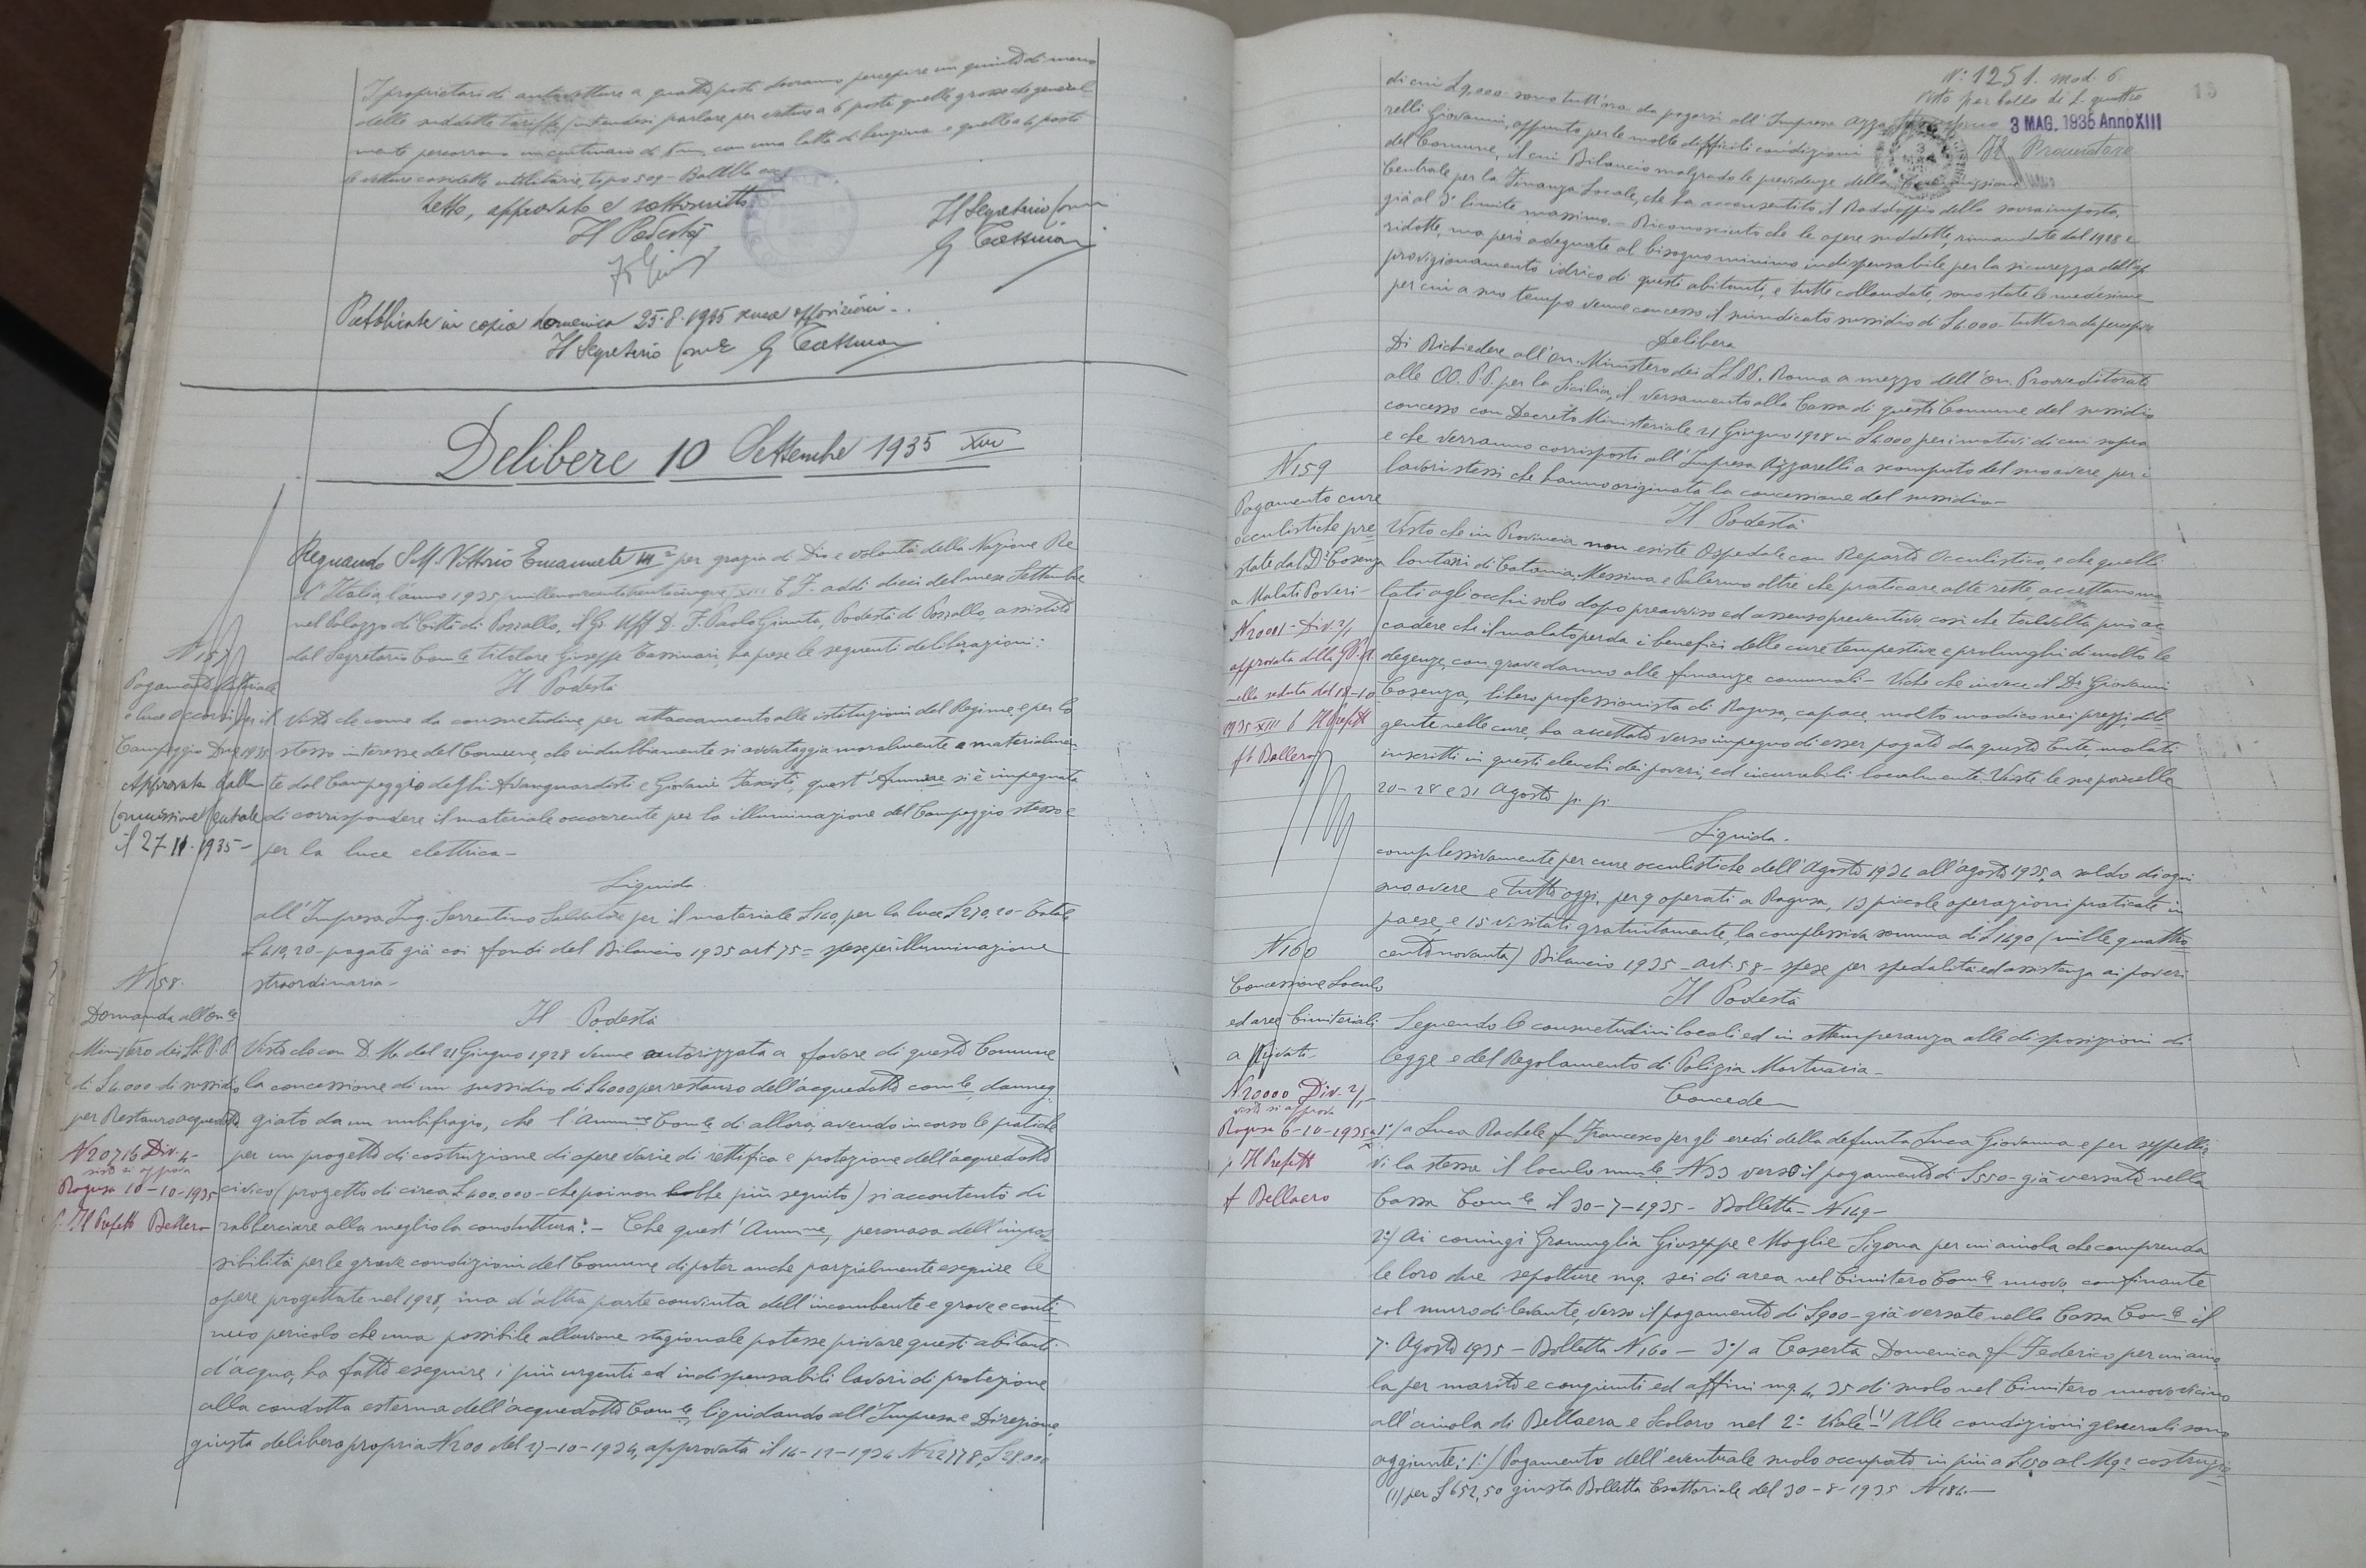 I proprietari di autovetture a quattro posti dovranno percepire un quinto di meno
delle suddette tariffe, intendesi parlare per vetture a 6 posti quelle grosse che general-
mente percorrono un centinaio di Km. con una latta di benzina e quelle a 4 posti
le vetture cosidette utilitarie, tipo 509 - Balilla ecc.
Letto, approvato e sottoscritto
Il Podestà
Il Segretario Com.
G Tassinari
Pubblicate in copia domenica 25.8.1935 senza opposizioni -
Il Segretario Com.le G Tassinari
Delibere 10 Settembre 1935 XIII
Regnando S.M. Vittorio Emanuele III° per grazia di Dio e volontà della Nazione Re
d'Italia, l'anno 1935 (millenovecentotrentacinque) XIII E.F. addì dieci del mese Settembre
nel Palazzo di Città di Pozzallo, il Gr. Uff D. F. Paolo Giunta, Podestà di Pozzallo, assistito
dal Segretario Com.le titolare Giuseppe Tassinari, ha prese le seguenti deliberazioni:
N 157
Pagamento materiale
e luce occorsi per il
Campeggio Dux 1935
Approvata dalla
Commissione Centrale
il 27-11-1935 -
Il Podestà
Visto che come da consuetudine, per attaccamento alle istituzioni del Regime, e per lo
stesso interesse del Comune, che indubbiamente si avvantaggia moralmente e materialmen-
te dal Campeggio degli Avanguardisti e Giovani Fascisti, quest'Amm.ne si è impegnata
di corrispondere il materiale occorrente per la illuminazione del Campeggio stesso e
per la luce elettrica -
Liquida
all'Impresa Ing. Sorrentino Salvatore per il materiale £ 140, per la luce £ 270,20 - Totale
£ 410,20 - pagate già coi fondi del Bilancio 1935 art 75 = spese per illuminazione
straordinaria -
N 158.
Domanda all'On.le
Ministero dei LL.P.P.
di £ 4.000 di sussidio
per Restauro acquedotto
N 20716 Div. 4 -
visto si approva
Ragusa 10-10-1935
p. Il Prefetto Bellero
Il Podestà
Visto che con D. M. del 21 Giugno 1928 venne autorizzata a favore di questo Comune
la concessione di un sussidio di £ 4000 per restauro dell'acquedotto com.le, danneg-
giato da un nubifragio, che l'Amm.ne Com.le di allora, avendo in corso le pratiche
per un progetto di costruzione di opere varie di rettifica e protezione dell'acquedotto
civico (progetto di circa £ 400.000 - che poi non ebbe più seguito) si accontentò di
rabberciare alla meglio la conduttura: - Che quest'Amm.ne, persuasa dell'impos-
sibilità per le grave condizioni del Comune di poter anche parzialmente eseguire le
opere progettate nel 1928, ma d'altra parte convinta dell'incombente e grave e conti-
nuo pericolo che una possibile alluvione stagionale potesse privare questi abitanti
d'acqua, ha fatto eseguire i più urgenti ed indispensabili lavori di protezione
alla condotta esterna dell'acquedotto Com.le, liquidando all'Impresa e Direzione,
giusta delibera propria N 200 del 27-10-1934, approvata il 14-12-1934 N 22778, £ 28.000
N: 1251. mod. 6
Visto per bollo di L. quattro
3 MAG. 1935 Anno XIII
Il Procuratore
13
di cui £ 9,000 sono tutt'ora da pagarsi all'Impresa Azza-
relli Giovanni, appunto per le molte difficili condizioni
del Comune, il cui Bilancio malgrado le previdenze della Commissione
Centrale per la Finanza Locale, che ha acconsentito il Raddoppio della sovraimposta,
già al 3° limite massimo. - Riconosciuto che le opere suddette, rimandate dal 1928 e
ridotte, ma però adeguate al bisogno minimo indispensabile per la sicurezza dell'ap-
provvigionamento idrico di questi abitanti, e tutte collaudate, sono state le medesime
per cui a suo tempo venne concesso il suindicato sussidio di £ 4.000 - tuttora da percepire
Delibera
Di Richiedere all'On. Ministero dei LL.PP. Roma a mezzo dell'On. Provveditorato
alle OO. P.P. per la Sicilia, il versamento alla Cassa di questo Comune del sussidio
concesso con Decreto Ministeriale 21 Giugno 1928 in £ 4.000 per i motivi di cui sopra
e che verranno corrisposti all'Impresa Azzarelli a scomputo del suo avere per i
lavori stessi che hanno originata la concessione del sussidio -
N 159
Pagamento cure
occulistiche pre-
state dal Dr. Cosenza
a Malati Poveri -
N 20001 - Div. 2/1
approvata dalla G.P.A.
nella seduta del 18-10
1935 XIII p. Il Prefetto
f.to Ballero
Il Podestà
Visto che in Provincia non esiste Ospedale con Reparto Occulistico, e che quelli
lontani di Catania, Messina e Palermo oltre che praticare alte rette, accettano ma-
lati agli occhi solo dopo preavviso ed assenso preventivo così che talvolta può ac-
cadere che il malato perda i benefici delle cure tempestive e prolunghi di molto le
degenze, con grave danno alle finanze comunali - Visto che invece il Dr. Giovanni
Cosenza, libero professionista di Ragusa, capace, molto modico nei prezzi, dili-
gente nelle cure, ha accettato verso impegno di esser pagato da questo Ente, malati
inscritti in questi elenchi dei poveri, ed incurabili localmente. Viste le sue parcelle
20 - 28 e 31 Agosto p. p.
Liquida.
complessivamente per cure occulistiche dell'Agosto 1934 all'agosto 1935, a saldo di ogni
suo avere e tutt'oggi, per 9 operati a Ragusa, 13 piccole operazioni praticate in
paese, e 15 visitati gratuitamente, la complessiva somma di £ 1490 (mille quattro-
centonovanta) Bilancio 1935 - art. 58 - spese per spedalità ed assistenza ai poveri
N 160
Concessione Loculo
ed aree Cimiteriali
a privati -
N 20000 Div. 2/1 -
visto si approva
Ragusa 6-10-1935
p. Il Prefetto
f Bellaero
Il Podestà
Seguendo le consuetudini locali ed in ottemperanza alle disposizioni di
legge e del Regolamento di Polizia Mortuaria -
Concede
1°/ a Luca Rachele fu Francesco per gli eredi della defunta Luca Giovanna e per seppellir-
vi la stessa il loculo num.le N 33 verso il pagamento di £ 550 - già versato nella
Cassa Com.le il 30-7-1935 - Bolletta - N 149 -
2°/ Ai coniugi Grammuglia Giuseppe e Moglie Sigona per un'aiuola che comprenda
le loro due sepolture mq. sei di area nel Cimitero Com.le nuovo, confinante
col muro di levante, verso il pagamento di £ 900 - già versate nella Cassa Com.le il
7. Agosto 1935 - Bolletta N 160 - 3°/ a Caserta Domenica fu Federico per un'aiuo-
la per marito e congiunti ed affini mq. 4,35 di suolo nel Cimitero nuovo vicino
all'aiuola di Bellaera e Scolaro nel 2° Viale (1) Alle condizioni generali sono
aggiunte: 1°/ Pagamento dell'eventuale suolo occupato in più a £ 150 al Mq. costruzio-
(1) per £ 652,50 giusta Bolletta Esattoriale del 30-8-1935 N 184 -